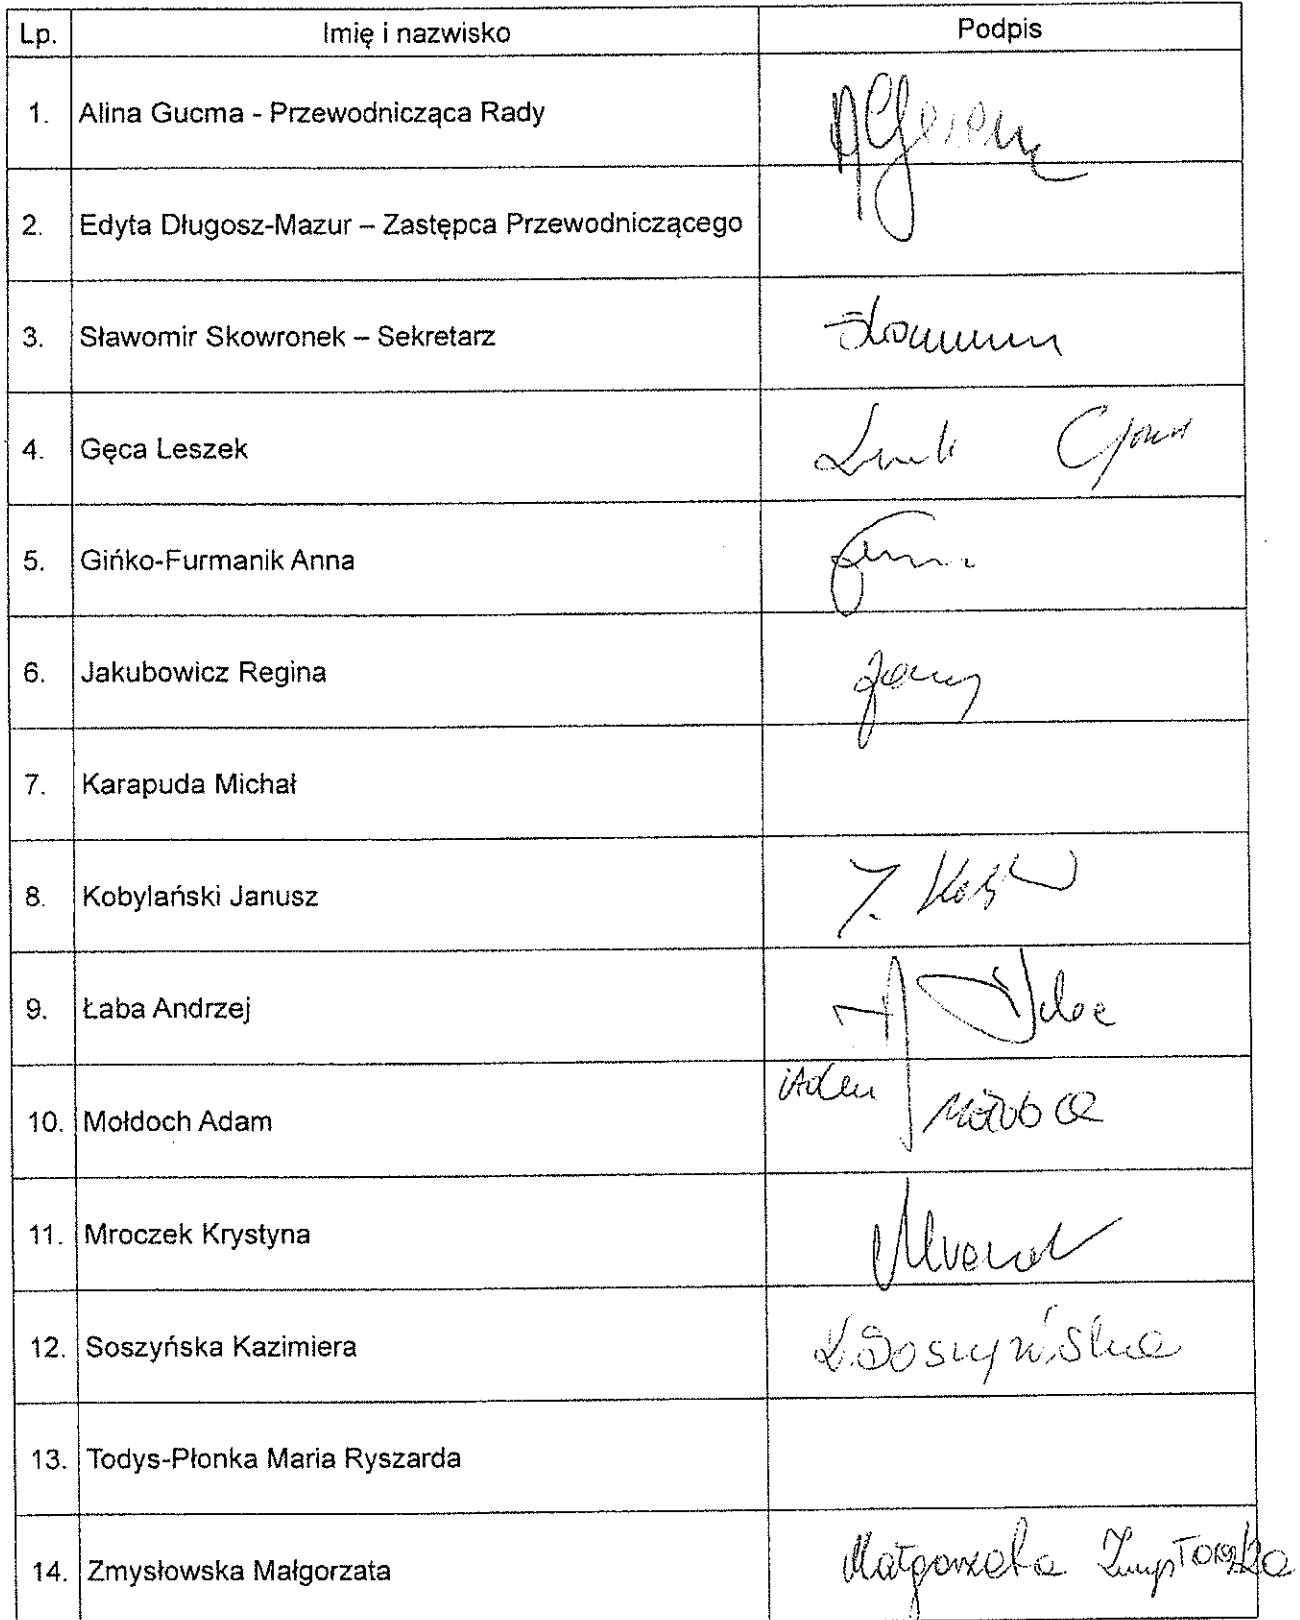 Lp. Imię i nazwisko Podpis
1. Alina Gucma - Przewodnicząca Rady
2. Edyta Długosz-Mazur – Zastępca Przewodniczącego
3. Sławomir Skowronek – Sekretarz
4. Gęca Leszek
5. Gińko-Furmanik Anna
6. Jakubowicz Regina
7. Karapuda Michał
8. Kobylański Janusz
9. Łaba Andrzej
10. Mołdoch Adam
11. Mroczek Krystyna
12. Soszyńska Kazimiera K. Soszyńska
13. Todys-Płonka Maria Ryszarda
14. Zmysłowska Małgorzata Małgorzata Zmysłowska